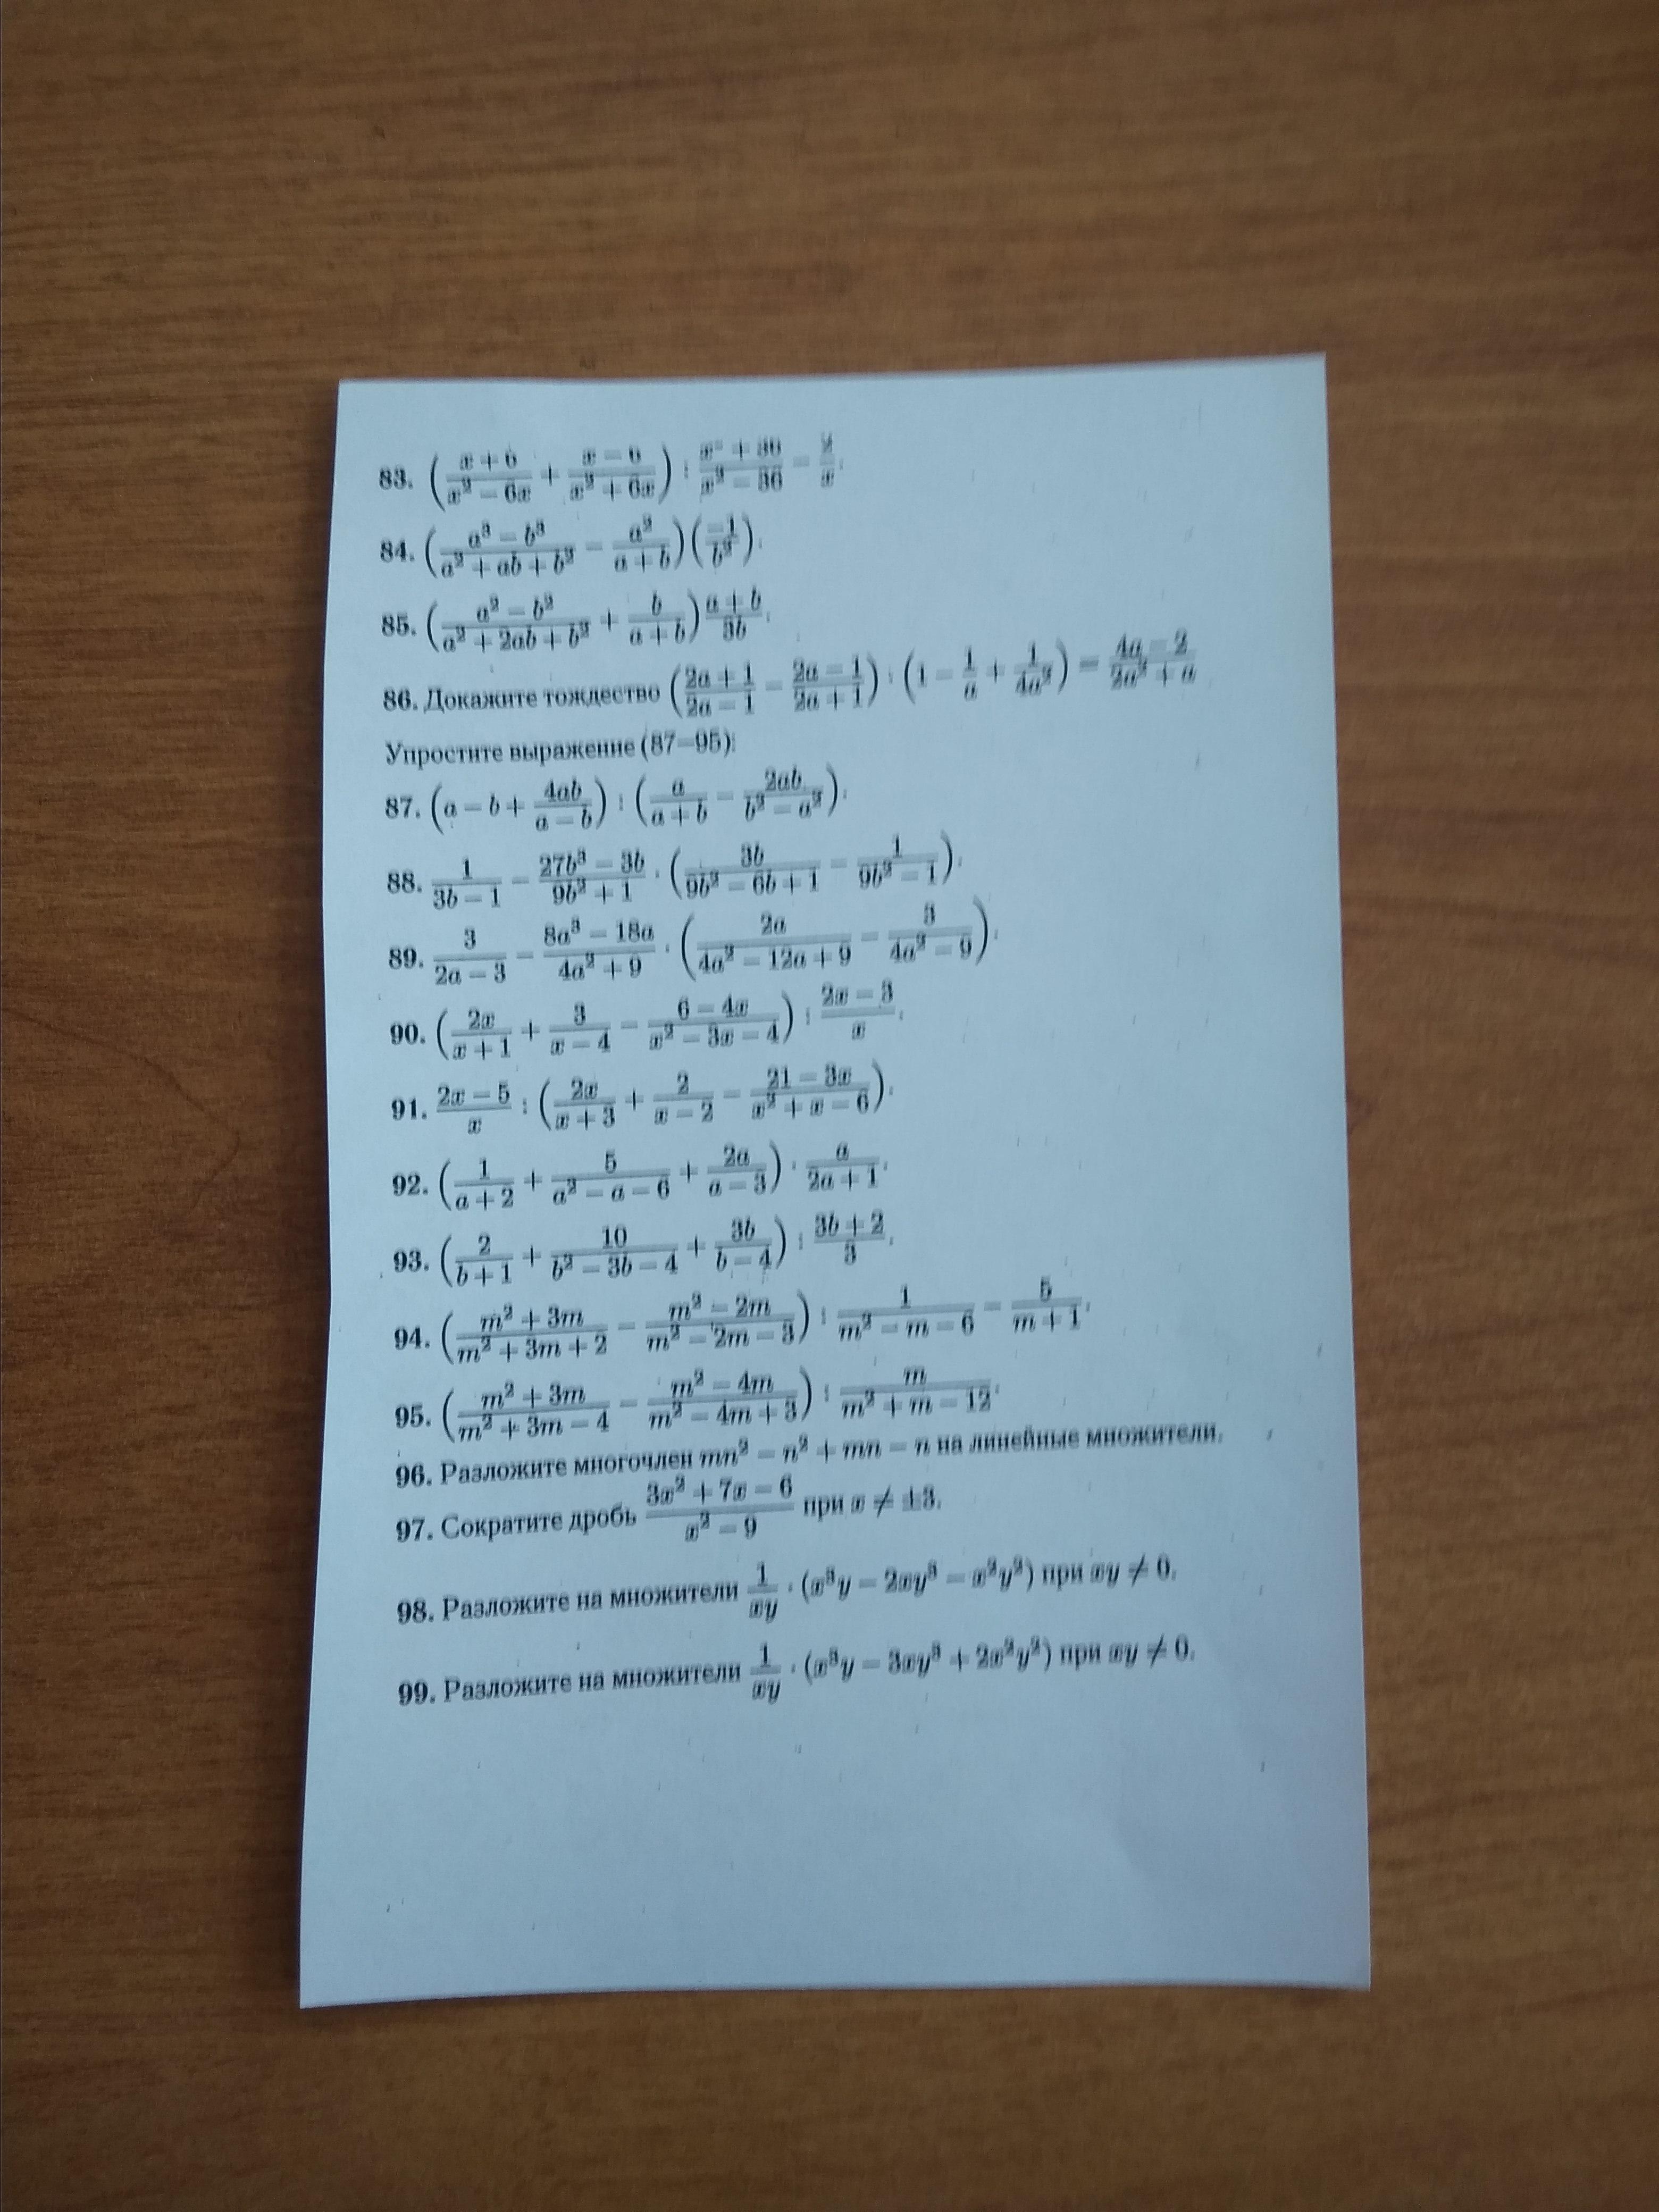 83. (x + 6 / x² − 6x + x − 6 / x² + 6x) : x² + 36 / x² − 36 − 2 / x.
84. (a³ − b³ / a² + ab + b² − a² / a + b)(−1 / b²).
85. (a² − b² / a² + 2ab + b² + b / a + b) a + b / 3b.
86. Докажите тождество (2a + 1 / 2a − 1 − 2a − 1 / 2a + 1) : (1 − 1 / a + 1 / 4a²) = 4a − 2 / 2a² + a
Упростите выражение (87–95):
87. (a − b + 4ab / a − b) : (a / a + b − 2ab / b² − a²).
88. 1 / 3b − 1 − 27b³ − 3b / 9b² + 1 · (3b / 9b² − 6b + 1 − 1 / 9b² − 1).
89. 3 / 2a − 3 − 8a³ − 18a / 4a² + 9 · (2a / 4a² − 12a + 9 − 3 / 4a² − 9).
90. (2x / x + 1 + 3 / x − 4 − 6 − 4x / x² − 3x − 4) : 2x − 3 / x.
91. 2x − 5 / x : (2x / x + 3 + 2 / x − 2 − 21 − 3x / x² + x − 6).
92. (1 / a + 2 + 5 / a² − a − 6 + 2a / a − 3) · a / 2a + 1.
93. (2 / b + 1 + 10 / b² − 3b − 4 + 3b / b − 4) : 3b + 2 / 3.
94. (m² + 3m / m² + 3m + 2 − m² − 2m / m² − 2m − 3) : 1 / m² − m − 6 − 5 / m + 1.
95. (m² + 3m / m² + 3m − 4 − m² − 4m / m² − 4m + 3) : m / m² + m − 12.
96. Разложите многочлен mn² − n² + mn − n на линейные множители.
97. Сократите дробь 3x² + 7x − 6 / x² − 9 при x ≠ ±3.
98. Разложите на множители 1 / xy · (x³y − 2xy³ − x²y²) при xy ≠ 0.
99. Разложите на множители 1 / xy · (x³y − 3xy³ + 2x²y²) при xy ≠ 0.